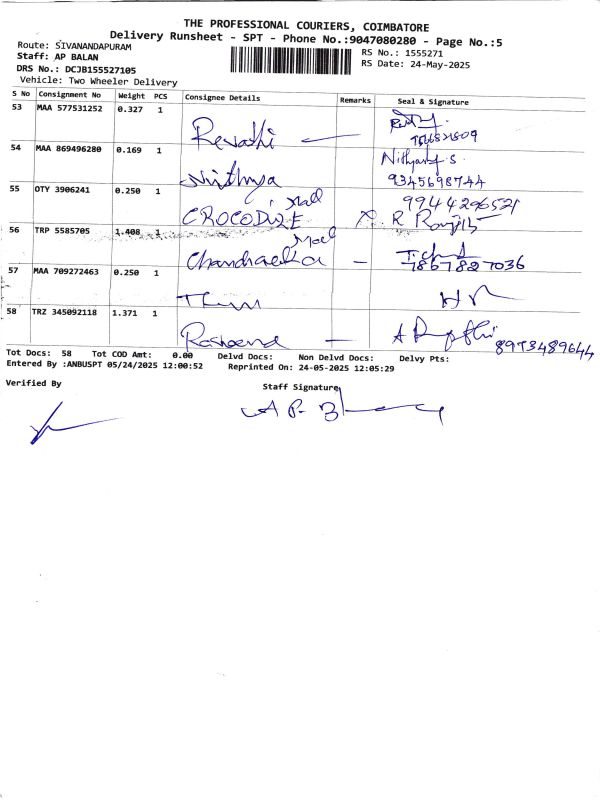 THE PROFESSIONAL COURIERS, COIMBATORE
Delivery Runsheet - SPT - Phone No.:9047080280 - Page No.:5
Route: SIVANANDAPURAM
RS No.: 1555271
Staff: AP BALAN
RS Date: 24-May-2025
DRS No.: DCJB155527105
Vehicle: Two Wheeler Delivery
S No Consignment No Weight PCS Consignee Details Remarks Seal & Signature
53 MAA 577531252 0.327 1 Revathi
54 MAA 869496280 0.169 1 Nithya Nithyasf S. 9345698744
55 OTY 3906241 0.250 1 CROCODILE Mall 9944296521 R Ranjith
56 TRP 5585705 1.408 1 Chandraleka Mall 7867827036
57 MAA 709272463 0.250 1
58 TRZ 345092118 1.371 1 8973489644
Tot Docs: 58 Tot COD Amt: 0.00 Delvd Docs: Non Delvd Docs: Delvy Pts:
Entered By :ANBUSPT 05/24/2025 12:00:52 Reprinted On: 24-05-2025 12:05:29
Verified By
Staff Signature
A P. B